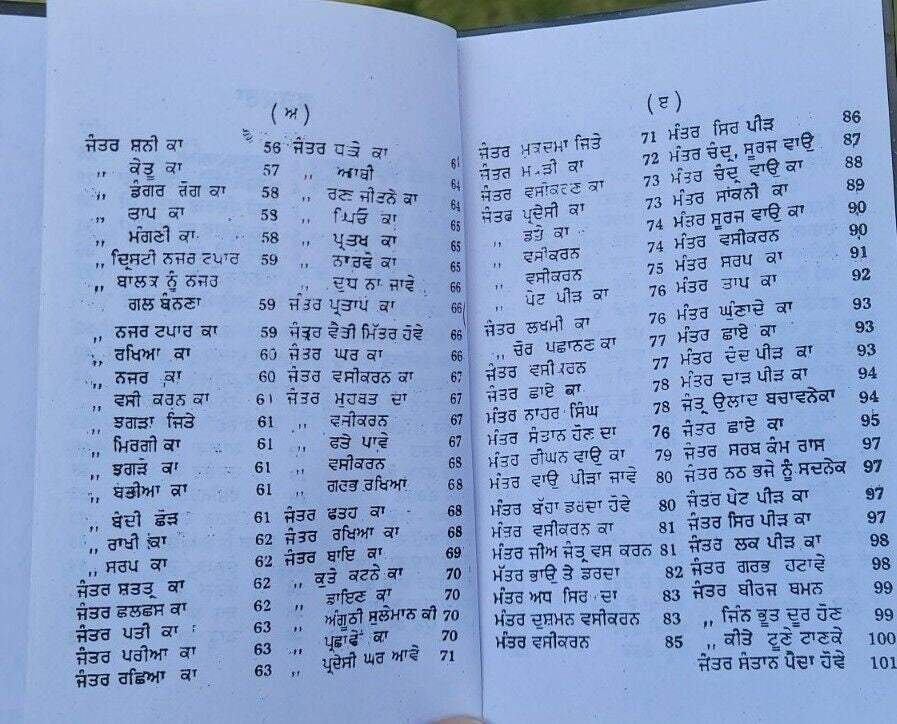 ( ਅ )
ਜੰਤਰ ਸ਼ਨੀ ਕਾ 56
,, ਕੇਤੂ ਕਾ 57
,, ਡੰਗਰ ਰੋਗ ਕਾ 58
,, ਤਾਪ ਕਾ 58
,, ਮੰਗਣੀ ਕਾ 58
,, ਦ੍ਰਿਸਟੀ ਨਜਰ ਟਪਾਰ 59
,, ਬਾਲਕ ਨੂੰ ਨਜਰ
ਗਲ ਬੰਨਣਾ 59
,, ਨਜਰ ਟਪਾਰ ਕਾ 59
,, ਰਖਿਆ ਕਾ 60
,, ਨਜਰ ਕਾ 60
,, ਵਸੀ ਕਰਨ ਕਾ 61
,, ਝਗੜਾ ਜਿਤੇ 61
,, ਮਿਰਗੀ ਕਾ 61
,, ਝਗੜੇ ਕਾ 61
,, ਬਤੀਆ ਕਾ 61
,, ਬੰਦੀ ਛੋੜ 61
,, ਰਾਖੀ ਕਾ 62
,, ਸਰਪ ਕਾ 62
ਜੰਤਰ ਸ਼ਤਤ੍ਰ ਕਾ 62
ਜੰਤਰ ਛਲਛਸ ਕਾ 62
ਜੰਤਰ ਪਤੀ ਕਾ 63
ਜੰਤਰ ਪਰੀਆ ਕਾ 63
ਜੰਤਰ ਰਛਿਆ ਕਾ 63
ਜੰਤਰ ਧੜੇ ਕਾ 61
,, ਆਖੀ 64
,, ਰਣ ਜੀਤਨੇ ਕਾ 64
,, ਪਿਓ ਕਾ 65
,, ਪ੍ਰਤਖ ਕਾ 65
,, ਨਾਰਵੇ ਕਾ 65
,, ਦੁਧ ਨਾ ਜਾਵੇ 66
ਜੰਤਰ ਪ੍ਰਤਾਪ ਕਾ 66
ਜੰਤ੍ਰਹ ਵੈਰੀ ਮਿੱਤਰ ਹੋਵੇ 66
ਜੰਤਰ ਘਰ ਕਾ 66
ਜੰਤਰ ਵਸੀਕਰਨ ਕਾ 67
ਜੰਤਰ ਮੁਹਬਤ ਦਾ 67
,, ਵਸੀਕਰਨ 67
,, ਫਤੇ ਪਾਵੇ 67
,, ਵਸੀਕਰਨ 68
,, ਗਰਭ ਰਖਿਆ 68
ਜੰਤਰ ਫਤਹ ਕਾ 68
ਜੰਤਰ ਰਖਿਆ ਕਾ 68
ਜੰਤਰ ਬਾਇ ਕਾ 69
,, ਕੁਤੇ ਕਟਨੇ ਕਾ 70
,, ਡਾਇਣ ਕਾ 70
,, ਅੰਗੂਠੀ ਸੁਲੇਮਾਨ ਕੀ 70
,, ਪ੍ਰਛਾਵੇਂ ਕਾ 70
,, ਪ੍ਰਦੇਸੀ ਘਰ ਆਵੇ 71
( ੲ )
ਜੰਤਰ ਮੁਕਦਮਾ ਜਿਤੇ 71
ਜੰਤਰ ਕਾ 72
ਜੰਤਰ ਵਸੀਕਰਣ ਕਾ 73
ਜੰਤਰ ਪ੍ਰਦੇਸੀ ਕਾ 73
,, ਫਤੇ ਕਾ 74
,, ਵਸੀਕਰਨ 74
,, ਵਸੀਕਰਨ 75
,, ਪੇਟ ਪੀੜ ਕਾ 76
ਜੰਤਰ ਲਖਮੀ ਕਾ 76
,, ਚੋਰ ਪਛਾਨਣ ਕਾ 77
ਜੰਤਰ ਵਸੀਕਰਨ 77
ਜੰਤਰ ਛਾਏ ਕਾ 78
ਮੰਤਰ ਨਾਹਰ ਸਿੰਘ 78
ਮੰਤਰ ਸੰਤਾਨ ਹੋਣ ਦਾ 76
ਮੰਤਰ ਰੀਘਨ ਵਾਉ ਕਾ 79
ਮੰਤਰ ਵਾਉ ਪੀੜਾ ਜਾਵੇ 80
ਮੰਤਰ ਬੱਹਾ ਡਰਦਾ ਹੋਵੇ 80
ਮੰਤਰ ਵਸੀਕਰਨ ਕਾ 81
ਮੰਤਰ ਜੀਅ ਜੰਤ੍ਰ ਵਸ ਕਰਨ 81
ਮੰਤਰ ਭਾਉ ਤੇ ਡਰਦਾ 82
ਮੰਤਰ ਅਧ ਸਿਰ ਦਾ 83
ਮੰਤਰ ਦੁਸ਼ਮਨ ਵਸੀਕਰਨ 83
ਮੰਤਰ ਵਸੀਕਰਨ 85
ਮੰਤਰ ਸਿਰ ਪੀੜ 86
ਮੰਤਰ ਚੰਦ੍ਰ, ਸੂਰਜ ਵਾਉ 87
ਮੰਤਰ ਚੰਦ੍ਰ ਵਾਉ ਕਾ 88
ਮੰਤਰ ਸਾਂਕਨੀ ਕਾ 89
ਮੰਤਰ ਸੂਰਜ ਵਾਉ ਕਾ 90
ਮੰਤਰ ਵਸੀਕਰਨ 90
ਮੰਤਰ ਸਰਪ ਕਾ 91
ਮੰਤਰ ਤਾਪ ਕਾ 92
ਮੰਤਰ ਘੰਨਾਦੇ ਕਾ 93
ਮੰਤਰ ਛਾਏ ਕਾ 93
ਮੰਤਰ ਦੰਦ ਪੀੜ ਕਾ 93
ਮੰਤਰ ਦਾੜ ਪੀੜ ਕਾ 94
ਜੰਤ੍ਰ ਉਲਾਦ ਬਚਾਵਨੇਕਾ 94
ਜੰਤਰ ਛਾਏ ਕਾ 95
ਜੰਤਰ ਸਰਬ ਕੰਮ ਰਾਸ 97
ਜੰਤਰ ਨਠ ਭਜੇ ਨੂੰ ਸਦਨੇਕ 97
ਜੰਤਰ ਪੇਟ ਪੀੜ ਕਾ 97
ਜੰਤਰ ਸਿਰ ਪੀੜ ਕਾ 97
ਜੰਤਰ ਲਕ ਪੀੜ ਕਾ 98
ਜੰਤਰ ਗਰਭ ਹਟਾਵੇ 98
ਜੰਤਰ ਬੀਰਜ ਥਮਨ 99
,, ਜਿੰਨ ਭੂਤ ਦੂਰ ਹੋਣ 99
,, ਕੀਤੇ ਟੂਣੇ ਟਾਣਕੇ 100
ਜੰਤਰ ਸੰਤਾਨ ਪੈਦਾ ਹੋਵੇ 101